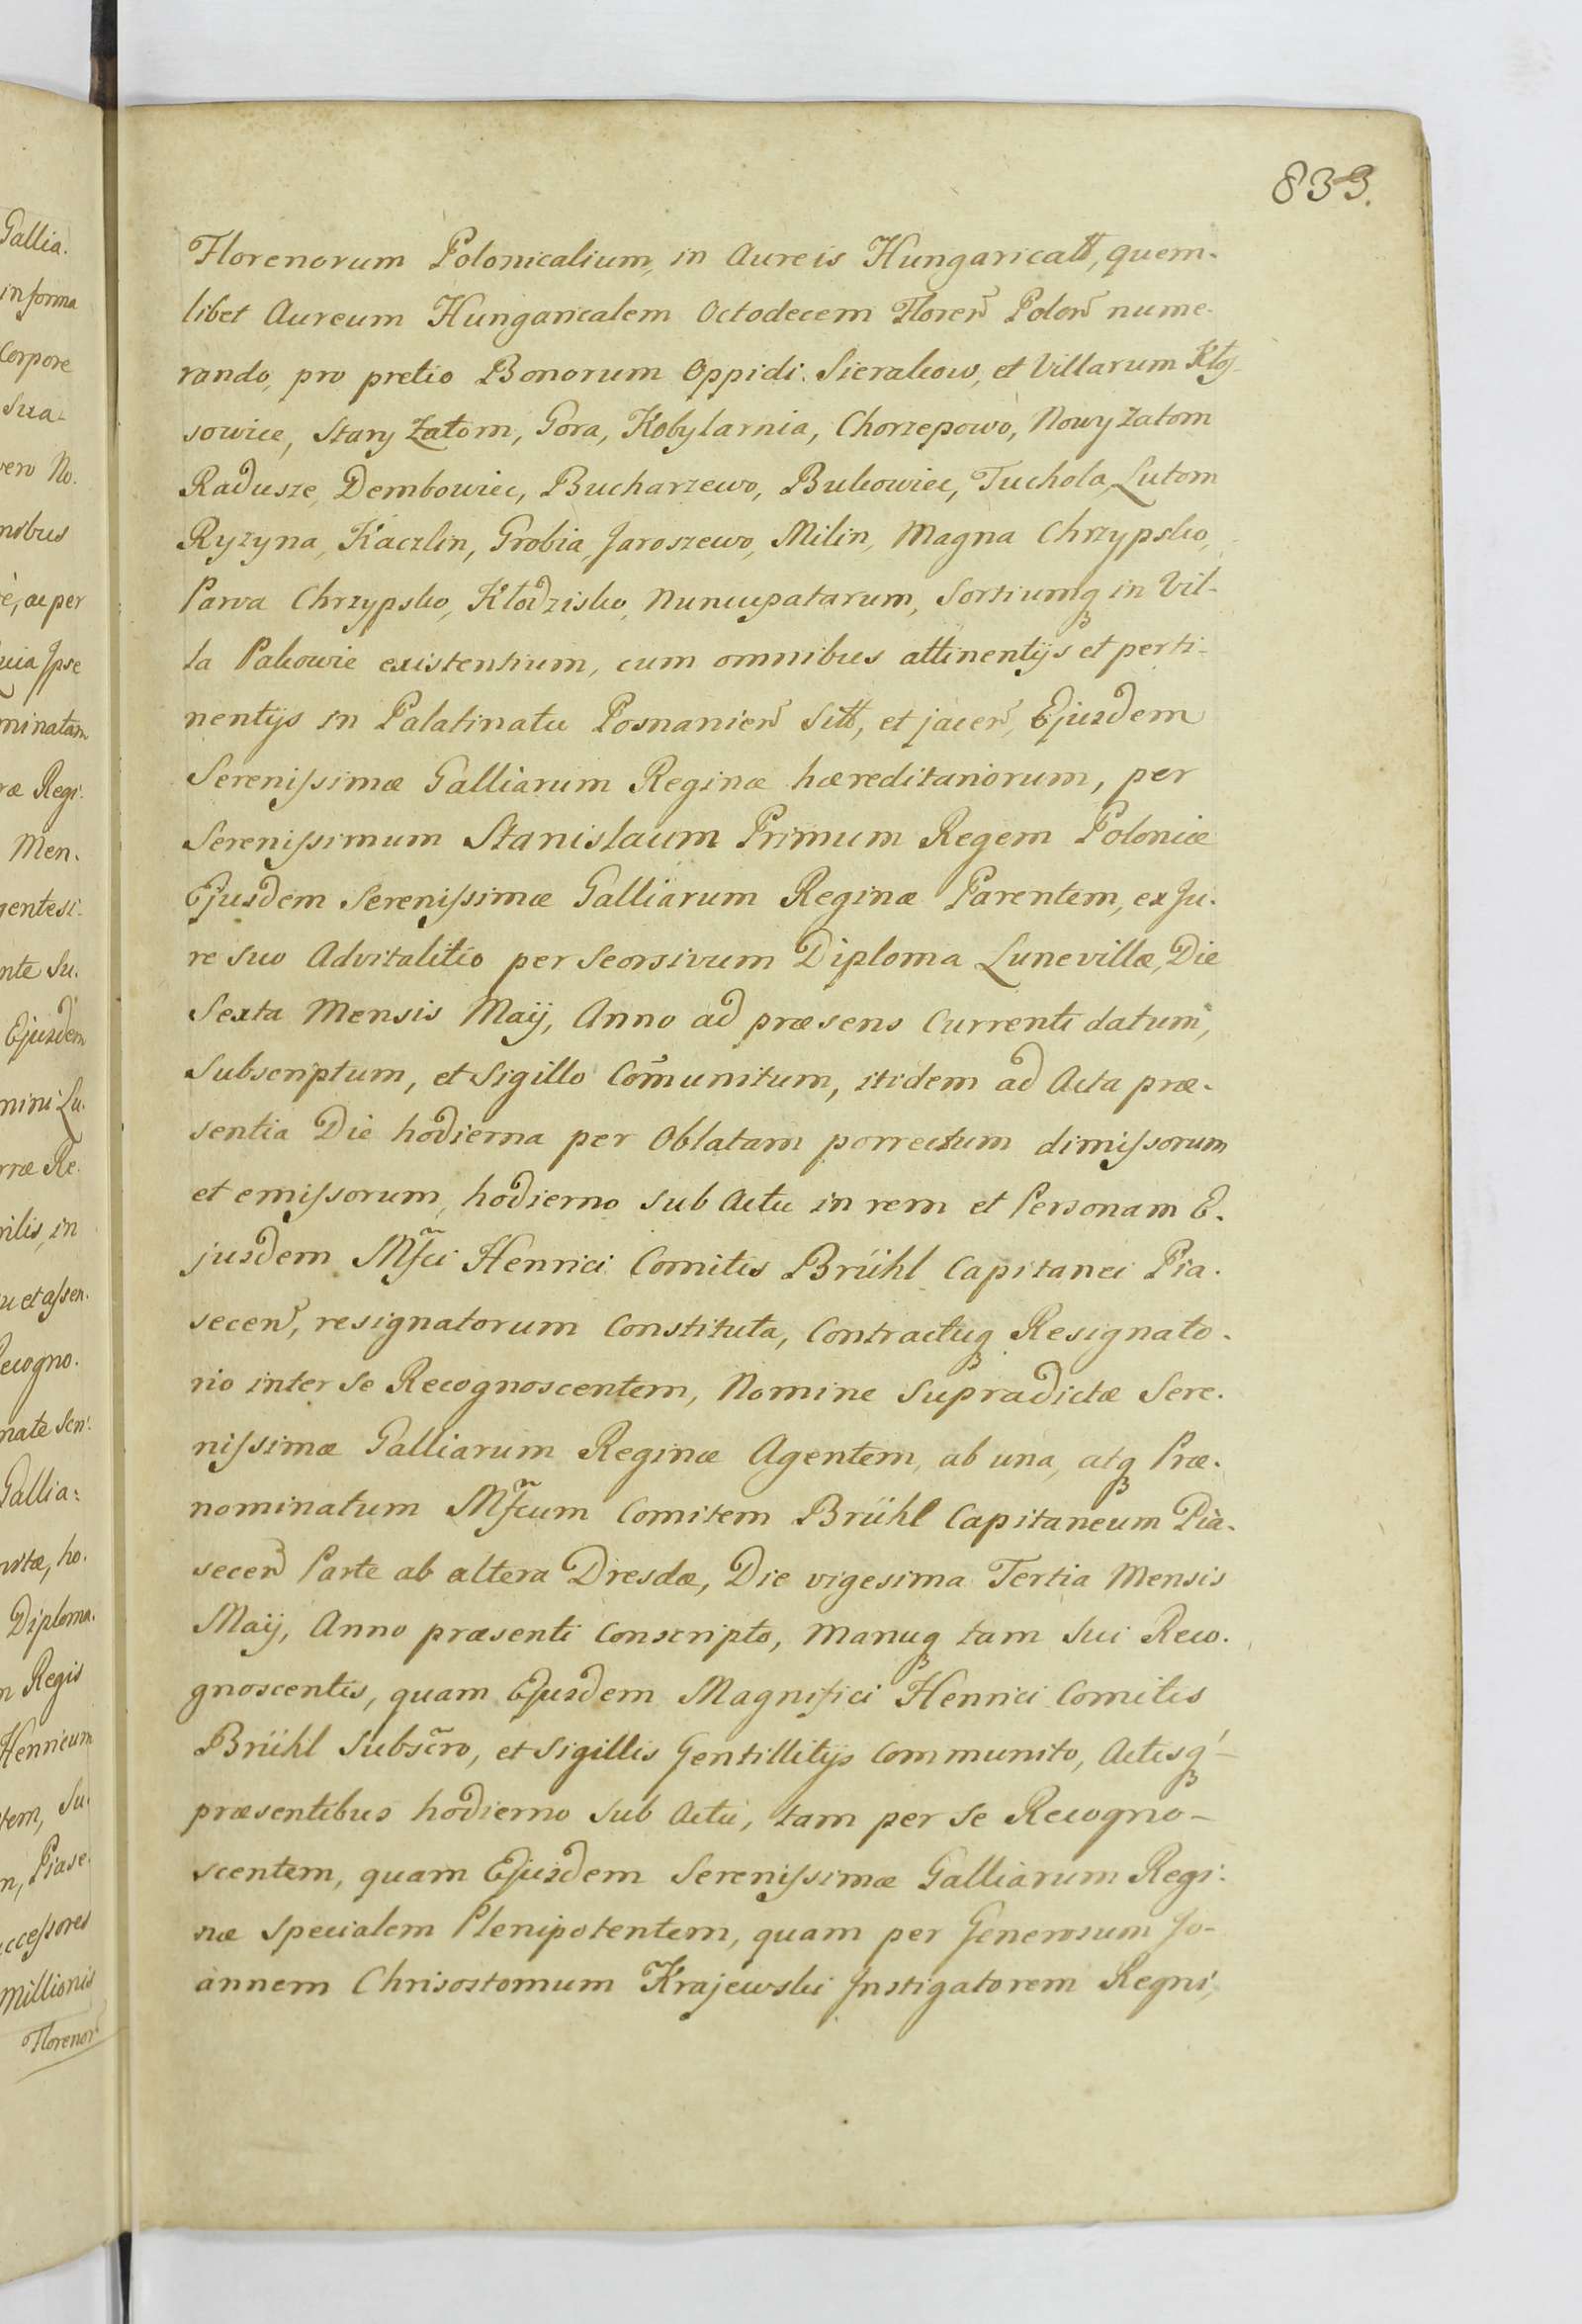 Gallia.
in forma
Corpore
Sua-
vero No.
nibus
rè, ac per
Ipse
minatam
ræ Regi.
Men.
gentesi.
nte Su.
Ejusdem
mini Lu.
rræ Re.
rilis, in
u et assen.
ecogno.
nate Scri.
Gallia:
ritæ, ho.
Diploma.
m Regis
Henricum
tem, Su.
m, Piase.
ccessores
Millionis
Florenor
833.
Florenorum Polonicalium, in Aureis Hungaricall, quem-
libet Aureum Hungaricalem Octodecem Floren Polon nume-
rando, pro pretio Bonorum Oppidi. Sierakow, et Villarum Kłos-
sowice, Stary Zatom, Gora, Kobylarnia, Chorzepowo, Nowy Zatom
Radusze, Dembowiec, Bucharzewo, Bukowiec, Tuchola, Lutom
Ryzyna, Kaczlin, Grobia, Jaroszewo, Milin, Magna Chrzypsko,
Parva Chrzypsko, Kłodzisko, Nuncupatarum, Sortiumq in Vil-
la Pakowie existentium, cum omnibus attinentijs et perti-
nentijs in Palatinatu Posnanien Sitt, et jacen, Ejusdem
Serenissimæ Galliarum Reginæ hæreditariorum, per
Serenissimum Stanislaum Primum Regem Poloniæ
Ejusdem Serenissimæ Galliarum Reginæ Parentem, ex Ju-
re suo Advitalitio per Seorsivum Diploma Lunevillæ, Die
Sexta Mensis Maij, Anno ad præsens Currenti datum,
Subscriptum, et Sigillo Com̃unitum, itidem ad Acta præ-
sentia Die hodierna per Oblatam porrectum dimissorum
et emissorum, hodierno sub Actu in rem et Personam E-
jusdem Mfci Henrici Comitis Brühl Capitanei Pia-
secen, resignatorum Constituta, Contractuq Resignato-
rio inter se Recognoscentem, Nomine Supradictæ Sere-
nissimæ Galliarum Reginæ Agentem, ab una, atq Præ-
nominatum Mfcum Comitem Brühl Capitaneum Pia-
secen Parte ab altera Dresdæ, Die vigesima Tertia Mensis
Maij, Anno præsenti Conscripto, Manuq tam sui Reco-
gnoscentis, quam Ejusdem Magnifici Henrici Comitis
Brühl Subscro, et Sigillis Gentillitijs Communito, Actisq-
præsentibus hodierno sub Actu, tam per se Recogno-
scentem, quam Ejusdem Serenissimæ Galliarum Regi-
næ Specialem Plenipotentem, quam per Generosum Jo-
annem Chrisostomum Krajewski Instigatorem Regni,